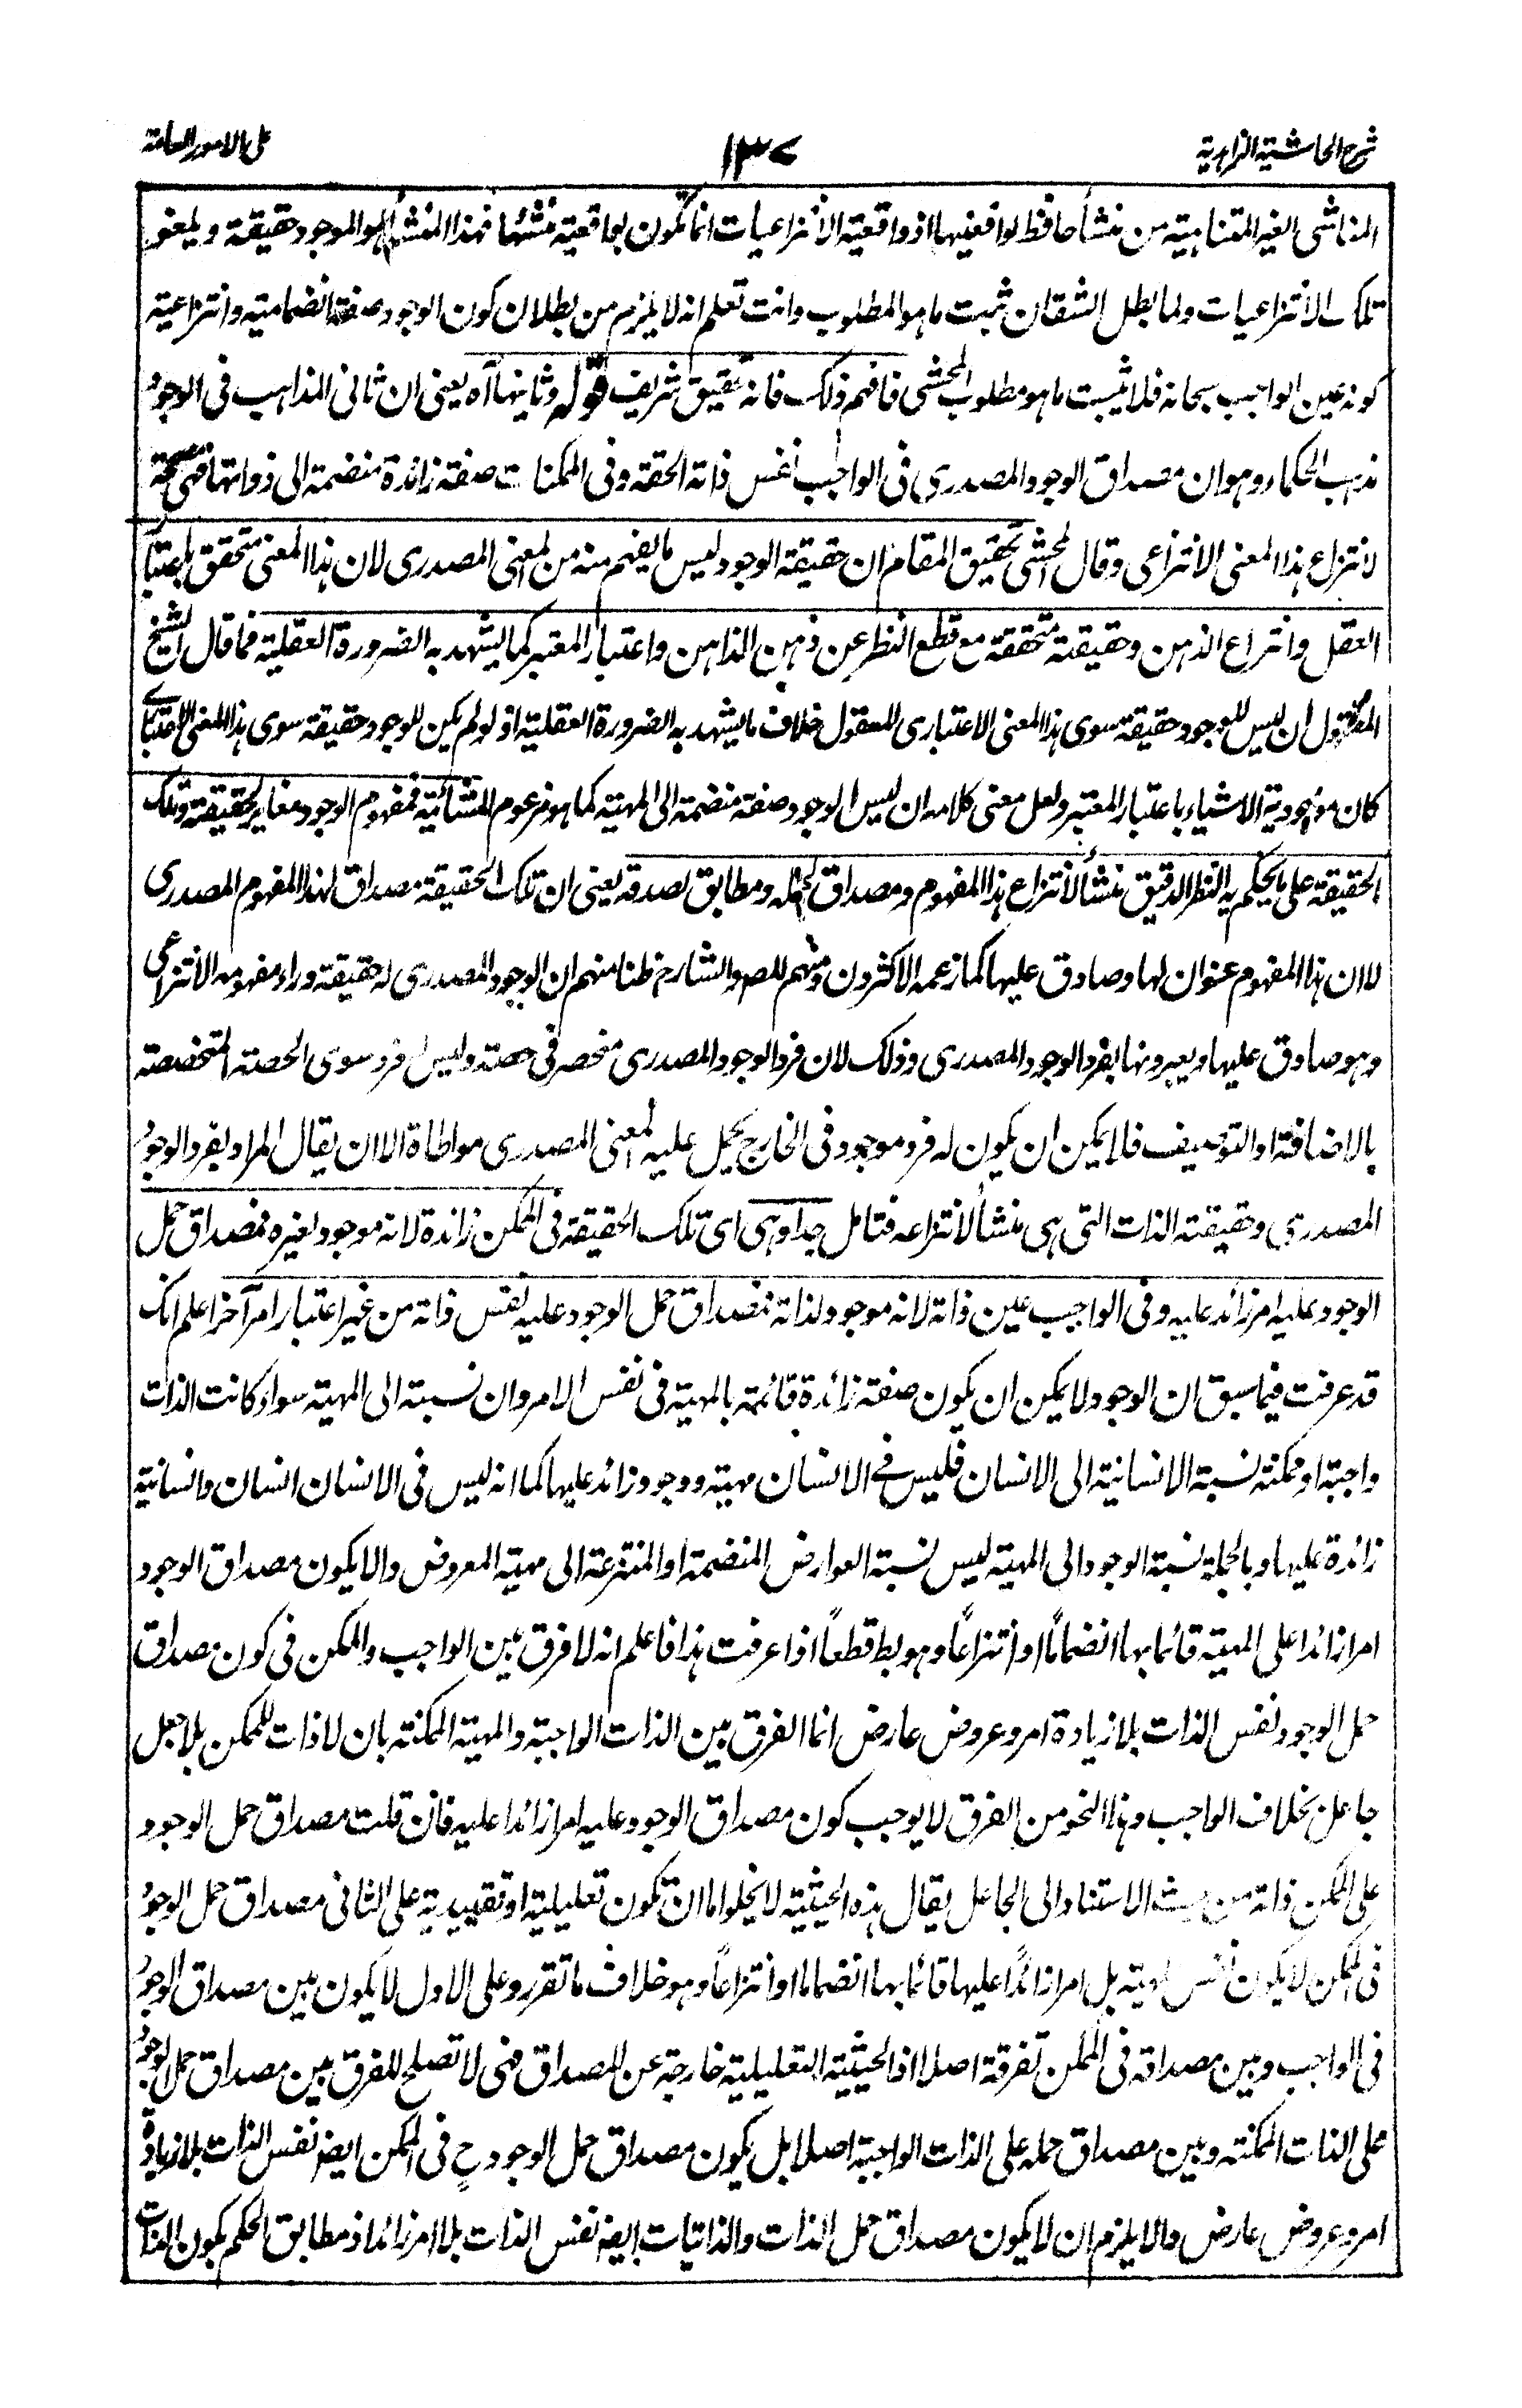 شرح الحاشية الزاهدية ١٣٧ على الامور العامة
المناشى الغير المتناهية من منشأ حافظ لواقعيتها اذ واقعية الانتزاعيات انما تكون بواقعية منشئها فهذا المنشأ هو الموجود حقيقة ويلغو
تلك الانتزاعيات ولما بطل الشقان ثبت ما هو المطلوب وانت تعلم انه لا يلزم من بطلان كون الوجود صفة انضمامية وانتزاعية
كونه عين الواجب سبحانه فلا يثبت ما هو مطلوب المحشى فافهم ذلك فانه تحقيق شريف قوله وثانيها آه يعنى ان ثانى المذاهب فى الوجود
مذهب الحكماء وهو ان مصداق الوجود المصدرى فى الواجب نفس ذاته الحقة وفى الممكنات صفة زائدة منضمة الى ذواتها فهى مصححة
لانتزاع هذا المعنى الانتزاعى وقال المحشى تحقيق المقام ان حقيقة الوجود ليس ما يفهم منه من المعنى المصدرى لان هذا المعنى متحقق باعتبار
العقل وانتزاع الذهن وحقيقته متحققة مع قطع النظر عن ذهن الذاهن واعتبار المعتبر كما يشهد به الضرورة العقلية فما قال الشيخ
المقتول ان ليس للوجود حقيقة سوى هذا المعنى الاعتبارى للعقول خلاف ما يشهد به الضرورة العقلية اذ لو لم يكن للوجود حقيقة سوى هذا المعنى الاعتبارى
كان موجودية الاشياء باعتبار المعتبر ولعل معنى كلامه ان ليس الوجود صفة منضمة الى المهية كما هو مزعوم المشائية فمفهوم الوجود مغاير لحقيقته وتلك
الحقيقة على ما يحكم به النظر الدقيق منشأ لانتزاع هذا المفهوم ومصداق لحمله ومطابق لصدقه يعنى ان تلك الحقيقة مصداق لهذا المفهوم المصدرى
لا ان هذا المفهوم عنوان لها وصادق عليها كما زعمه الاكثرون ومنهم المص والشارح ظنا منهم ان الوجود المصدرى له حقيقة وراء مفهومه الانتزاعى
وهو صادق عليها ويعبرونها بفرد الوجود المصدرى وذلك لان فرد الوجود المصدرى منحصر فى حصته وليس له فرد سوى الحصة المتخصصة
بالاضافة او التوصيف فلا يمكن ان يكون له فرد موجود فى الخارج يحمل عليه المعنى المصدرى مواطاة الا ان يقال المراد بفرد الوجود
المصدرى وحقيقته الذات التى هى منشأ لانتزاعه فتامل جدا وهى اى تلك الحقيقة فى الممكن زائدة لانه موجود لغيره فمصداق حمل
الوجود عليه امر زائد عليه وفى الواجب عين ذاته لانه موجود لذاته فمصداق حمل الوجود عليه نفس ذاته من غير اعتبار امر آخر اعلم انك
قد عرفت فيما سبق ان الوجود لا يمكن ان يكون صفة زائدة قائمة بالمهية فى نفس الامر وان نسبته الى المهية سواء كانت الذات
واجبة او ممكنة نسبة الانسانية الى الانسان فليس فى الانسان مهية ووجود زائد عليها كما انه ليس فى الانسان انسان وانسانية
زائدة عليها وبالجملة نسبة الوجود الى المهية ليس نسبة العوارض المنضمة او المنتزعة الى مهية المعروض والا يكون مصداق الوجود
امرا زائدا على المهية قائما بها انضماما او انتزاعاً وهو بط قطعاً اذا عرفت هذا فاعلم انه لا فرق بين الواجب والممكن فى كون مصداق
حمل الوجود نفس الذات بلا زيادة امر وعروض عارض انما الفرق بين الذات الواجبة والمهية الممكنة بان لا ذات للممكن بلا جعل
جاعل بخلاف الواجب وهذا النحو من الفرق لا يوجب كون مصداق الوجود عليه امرا زائدا عليه فان قلت مصداق حمل الوجود
على الممكن ذاته من حيث الاستناد الى الجاعل يقال هذه الحيثية لا يخلو اما ان تكون تعليلية او تقييدية على الثانى مصداق حمل الوجود
فى الممكن لا يكون نفس المهية بل امرا زائدًا عليها قائما بها انضماما او انتزاعاً وهو خلاف ما تقرر وعلى الاول لا يكون بين مصداق الوجود
فى الواجب وبين مصداقه فى الممكن تفرقة اصلا اذ الحيثية التعليلية خارجة عن المصداق فهى لا تصلح للفرق بين مصداق حمل الوجود
على الذات الممكنة وبين مصداق حمله على الذات الواجبة اصلا بل يكون مصداق حمل الوجود ح فى الممكن ايضا نفس الذات بلا زيادة
امر وعروض عارض والا يلزم ان لا يكون مصداق حمل الذات والذاتيات ايضا نفس الذات بلا امر زائد اذ مطابق الحكم بكون الذات